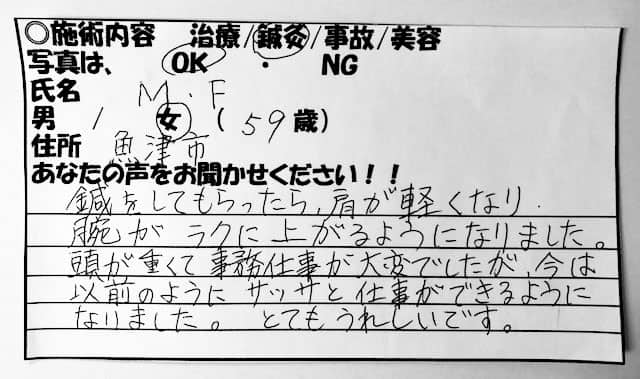 ◎施術内容 治療/鍼灸/事故/美容
写真は、 OK ・ NG
氏名 M.F
男 / 女 (59歳)
住所 魚津市
あなたの声をお聞かせください！！
鍼をしてもらったら,肩が軽くなり.
腕が ラクに上がるようになりました。
頭が重くて事務仕事が大変でしたが,今は
以前のように サッサと仕事ができるように
なりました。 とてもうれしいです。